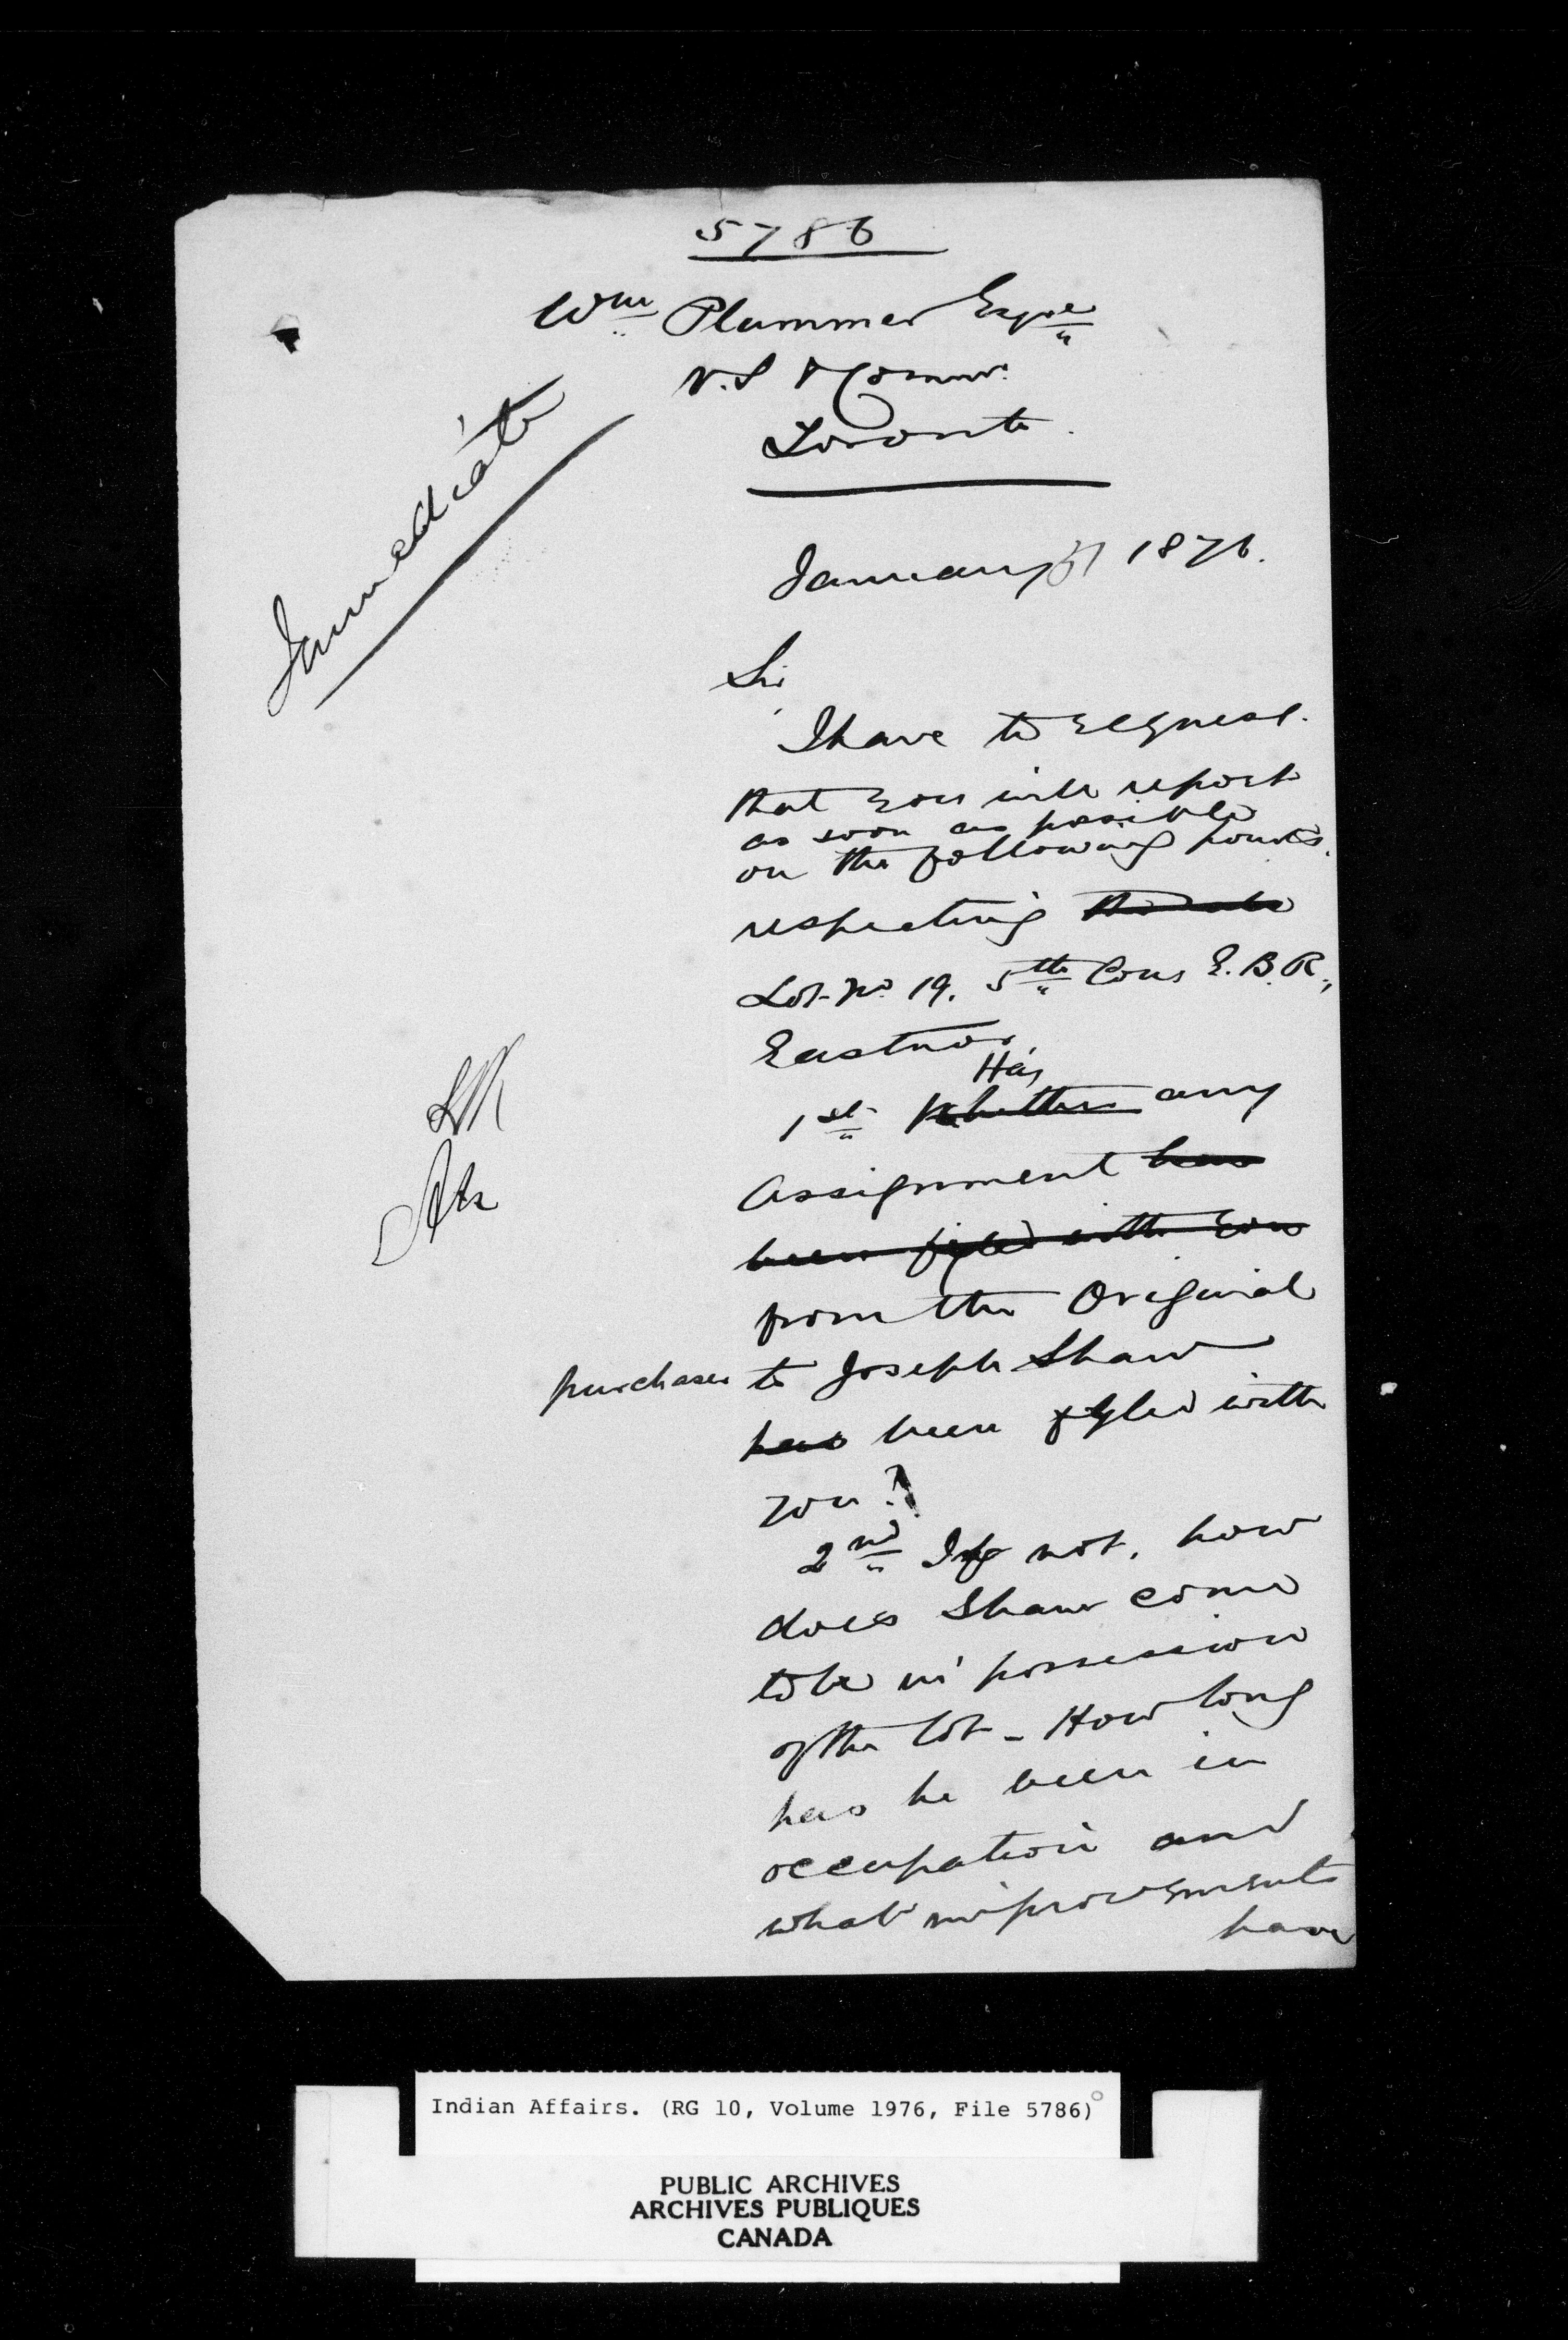 5786
Wm Plummer Esqre
V.S & Commr.
Toronto.
Immediate
January 1876.
Sir
I have to request
that you will report
as soon as possible
on the following points
respecting the sale
Lot No 19. 5th Cons E.B.R.,
Eastnor,
Has
1st Whether any
Assignment has
been fyled with you
from the Original
purchaser to Joseph Shaw
has been fyled with
you?
2nd If not, how
does Shaw come
to be in possession
of the lot - How long
has he been in
occupation and
what improvements
have
Indian Affairs. (RG 10, Volume 1976, File 5786)
PUBLIC ARCHIVES
ARCHIVES PUBLIQUES
CANADA